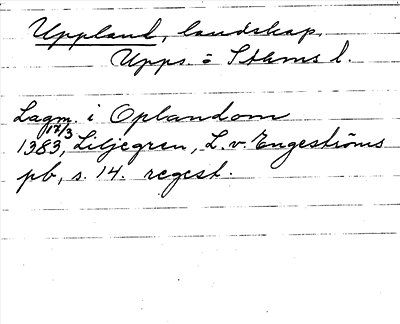 Uppland, landskap.
Upps. = Sthms l.
Lagm. i Oplandom
1383 12/3, Liljegren, L. v. Engeströms
pb, s. 14. regest.